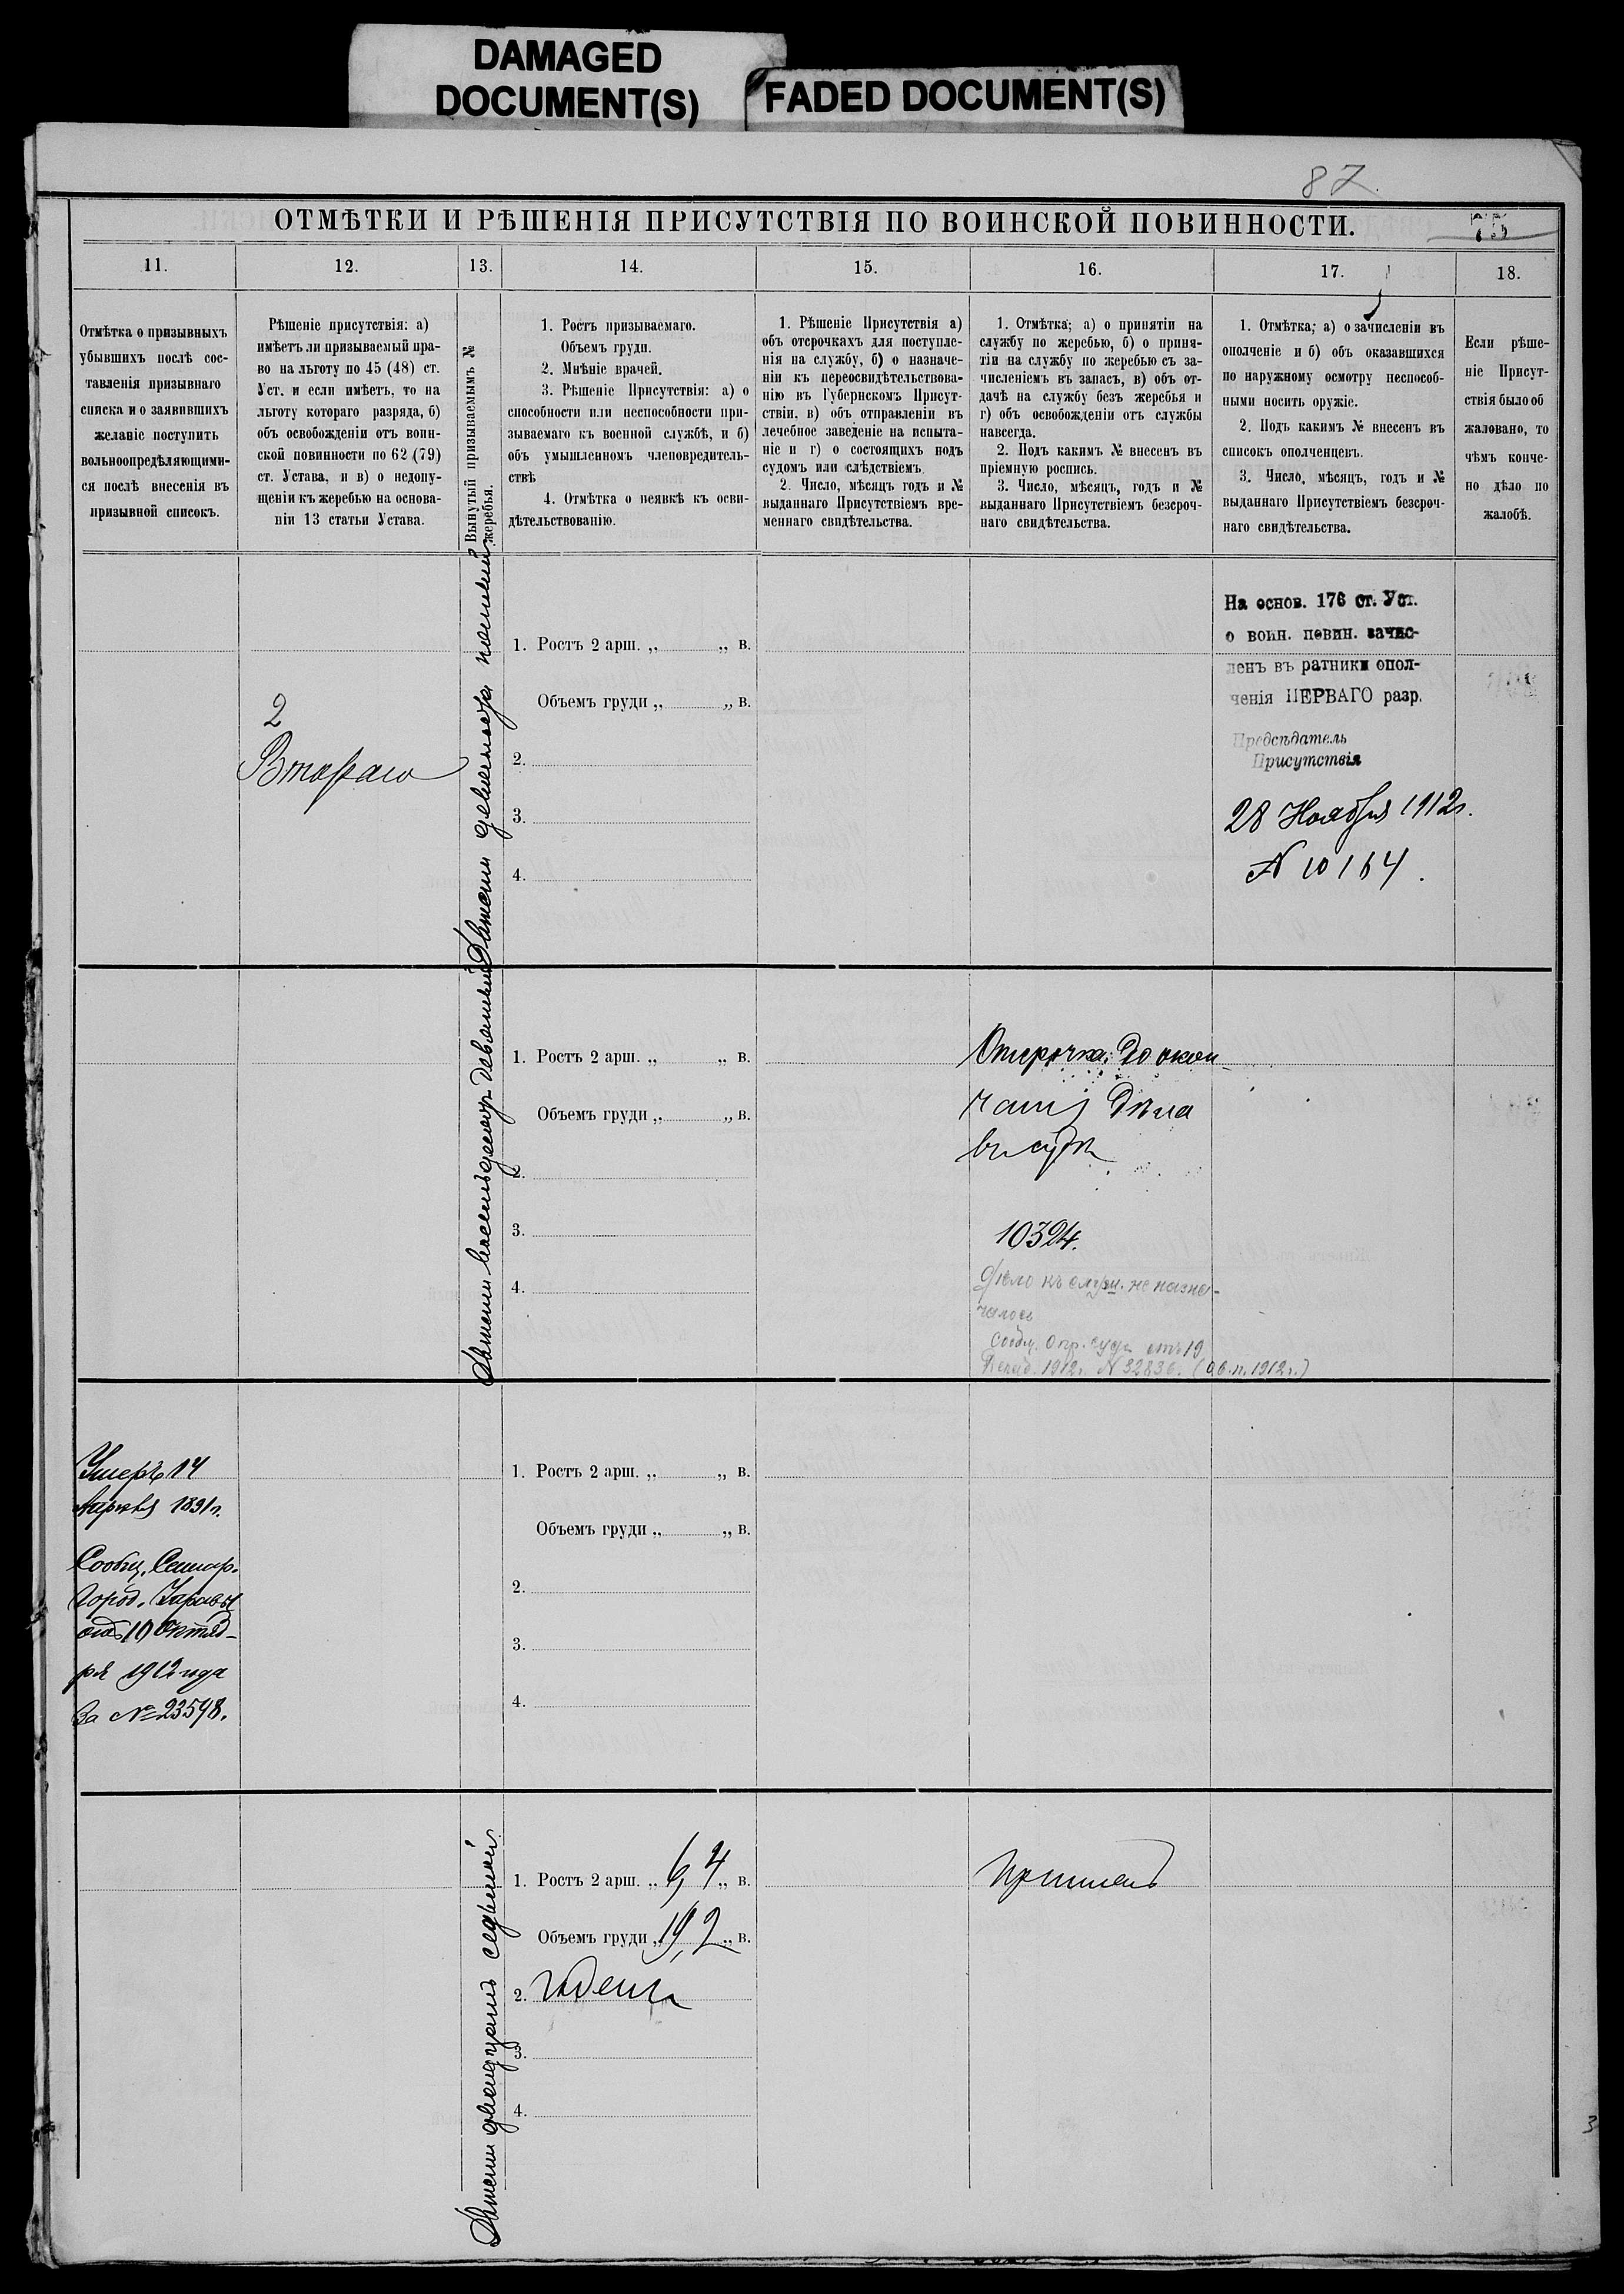 DAMAGED
DOCUMENT(S)
FADED DOCUMENT(S)
87.
ОТМѢТКИ И РѢШЕНІЯ ПРИСУТСТВІЯ ПО ВОИНСКОЙ ПОВИННОСТИ.
75
11.
12.
13.
14.
15.
16.
17.
18.
Отмѣтка о призывныхъ
убывшихъ послѣ сос-
тавленія призывнаго
списка и о заявившихъ
желаніе поступить
вольноопредѣляющими-
ся послѣ внесенія въ
призывной списокъ.
Рѣшеніе присутствія: а)
имѣетъ ли призываемый пра-
во на льготу по 45 (48) ст.
Уст. и если имѣетъ, то на
льготу котораго разряда, б)
объ освобожденіи отъ воин-
ской повинности по 62 (79)
ст. Устава, и в) о недопу-
щеніи къ жеребью на основа-
ніи 13 статьи Устава.
Вынутый призываемымъ №
жеребья.
1. Ростъ призываемаго.
Объемъ груди.
2. Мнѣніе врачей.
3. Рѣшеніе Присутствія: а) о
способности или неспособности при-
зываемаго къ военной службѣ, и б)
объ умышленномъ членовредитель-
ствѣ
4. Отмѣтка о неявкѣ къ осви-
дѣтельствованію.
1. Рѣшеніе Присутствія а)
объ отсрочкахъ для поступле-
нія на службу, б) о назначе-
ніи къ переосвидѣтельствова-
нію въ Губернскомъ Присут-
ствіи. в) объ отправленіи въ
лечебное заведеніе на испыта-
ніе и г) о состоящихъ подъ
судомъ или слѣдствіемъ.
2. Число, мѣсяцъ годъ и №
выданнаго Присутствіемъ вре-
меннаго свидѣтельства.
1. Отмѣтка; а) о принятіи на
службу по жеребью, б) о приня-
тіи на службу по жеребью съ за-
численіемъ въ запасъ, в) объ от-
дачѣ на службу безъ жеребья и
г) объ освобожденіи отъ службы
навсегда.
2. Подъ какимъ № внесенъ въ
пріемную роспись.
3. Число, мѣсяцъ, годъ и №
выданнаго Присутствіемъ безсроч-
наго свидѣтельства.
1. Отмѣтка; а) о зачисленіи въ
ополченіе и б) объ оказавшихся
по наружному осмотру неспособ-
ными носить оружіе.
2. Подъ какимъ № внесенъ въ
списокъ ополченцевъ.
3. Число, мѣсяцъ, годъ и №
выданнаго Присутствіемъ безсроч-
наго свидѣтельства.
Если рѣше-
ніе Присут-
ствія было об
жаловано, то
чѣмъ конче-
но дѣло по
жалобѣ.
2
Втораго
Двѣсти девяносто
1. Ростъ 2 арш. „ „ в.
Объемъ груди „ „ в.
2.
3.
4.
На основ. 176 ст. Уст.
о воин. повин. зачис-
ленъ въ ратники опол-
ченія ПЕРВАГО разр.
Предсѣдатель
Присутствія
28 Ноября 1912г.
N 10164.
Двѣсти восемьдесятъ девятый
1. Ростъ 2 арш. „ „ в.
Объемъ груди „ „ в.
2.
3.
4.
Отсрочка до окон-
чанія дѣла
въ судѣ
10324.
Дѣло къ слуш. не назна-
чалось
Сообщ. Окр. суда отъ 19
1912г. N 32836. (1912г.)
Умеръ 14
Апрѣля 1891г.
Сообщ.
Город. Управы
отъ 10 Октяб-
ря 1912 года
за № 23598.
1. Ростъ 2 арш. „ „ в.
Объемъ груди „ „ в.
2.
3.
4.
Двѣсти двадцать седьмой
1. Ростъ 2 арш. „ 6,4 „ в.
Объемъ груди „ 19,2 „ в.
2. Годенъ
3.
4.
Принятъ
3